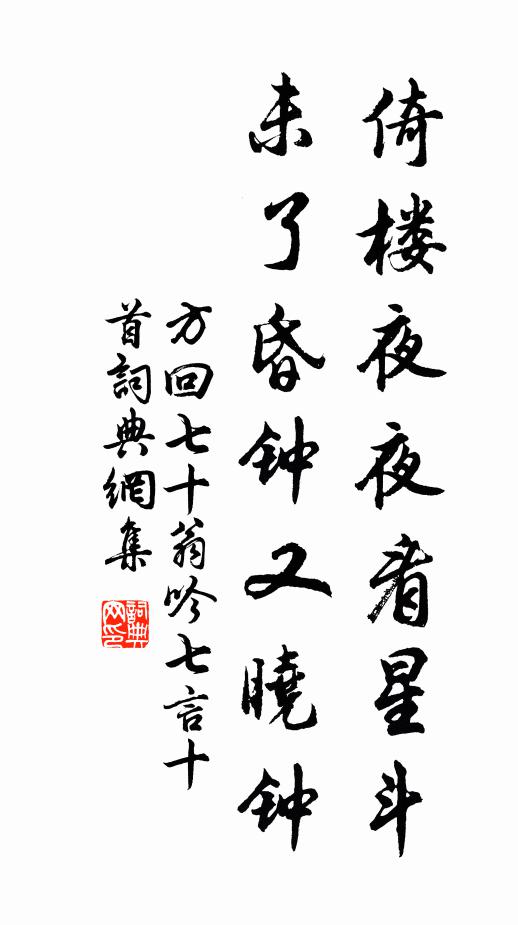 倚楼夜夜看星斗
未了昏钟又曉钟
方回七十翁吟七言十
首詞典網集
詞典
网印